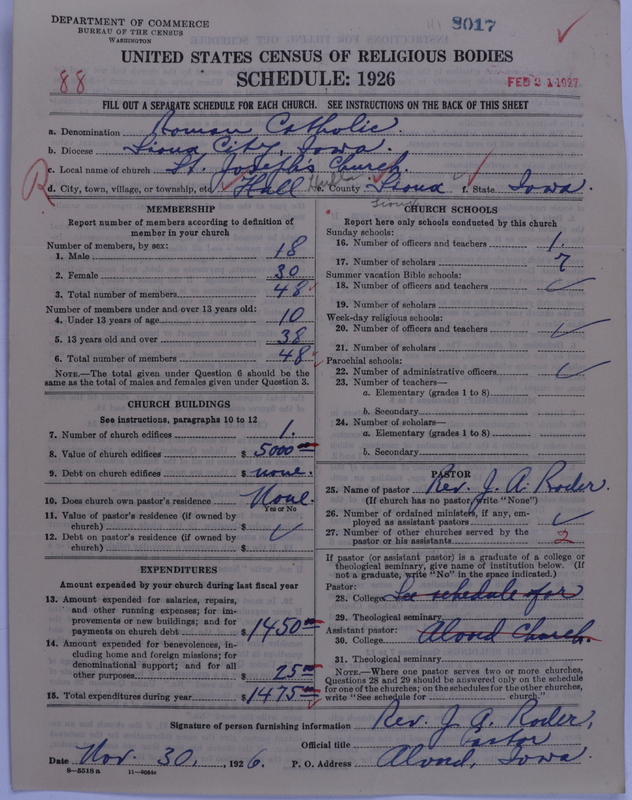 DEPARTMENT OF COMMERCE
BUREAU OF THE CENSUS
WASHINGTON
8017
UNITED STATES CENSUS OF RELIGIOUS BODIES
SCHEDULE: 1926
88
FEB 21 1927
FILL OUT A SEPARATE SCHEDULE FOR EACH CHURCH. SEE INSTRUCTIONS ON THE BACK OF THIS SHEET
a. Denomination Roman Catholic.
b. Diocese Sioux City, Iowa.
c. Local name of church St. Joseph's Church.
R d. City, town, village, or township, etc. Hull e. County Sioux f. State Iowa.
Hull
Sioux
MEMBERSHIP
Report number of members according to definition of member in your church
Number of members, by sex:
1. Male 18
2. Female 30
3. Total number of members 48
Number of members under and over 13 years old:
4. Under 13 years of age 10
5. 13 years old and over 38
6. Total number of members 48
NOTE.—The total given under Question 6 should be
same as the total of males and females given under Question 3.
CHURCH BUILDINGS
See instructions, paragraphs 10 to 12
7. Number of church edifices 1.
8. Value of church edifices $ 5000
9. Debt on church edifices $ none.
10. Does church own pastor's residence None.
Yes or No
11. Value of pastor's residence (if owned by
church) $
12. Debt on pastor's residence (if owned by
church) $
EXPENDITURES
Amount expended by your church during last fiscal year
13. Amount expended for salaries, repairs,
and other running expenses; for im-
provements or new buildings; and for
payments on church debt $ 1450
14. Amount expended for benevolences, in-
cluding home and foreign missions; for
denominational support; and for all
other purposes $ 25
15. Total expenditures during year $ 1475
CHURCH SCHOOLS
Report here only schools conducted by this church
Sunday schools:
16. Number of officers and teachers 1.
17. Number of scholars 7
Summer vacation Bible schools:
18. Number of officers and teachers
19. Number of scholars
Week-day religious schools:
20. Number of officers and teachers
21. Number of scholars
Parochial schools:
22. Number of administrative officers
23. Number of teachers—
a. Elementary (grades 1 to 8)
b. Secondary
24. Number of scholars—
a. Elementary (grades 1 to 8)
b. Secondary
PASTOR
25. Name of pastor Rev. J. A. Roder.
(If church has no pastor, write "None")
26. Number of ordained ministers, if any, em-
ployed as assistant pastors
27. Number of other churches served by the
pastor or his assistants 2
If pastor (or assistant pastor) is a graduate of a college or
theological seminary, give name of institution below. (If
not a graduate, write "No" in the space indicated.)
Pastor:
28. College See schedule of or
29. Theological seminary
Assistant pastor: Alvord Church.
30. College
31. Theological seminary
NOTE.—Where one pastor serves two or more churches,
Questions 28 and 29 should be answered only on the schedule
for one of the churches; on the schedules for the other churches,
write "See schedule for church."
Signature of person furnishing information Rev. J. A. Roder,
Official title Pastor
Date Nov. 30, 1926. P. O. Address Alvord, Iowa.
8—5518 a